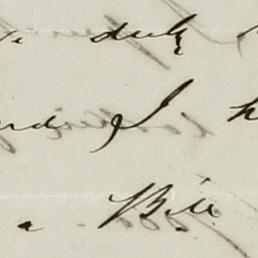 duly
and I h
a Bill